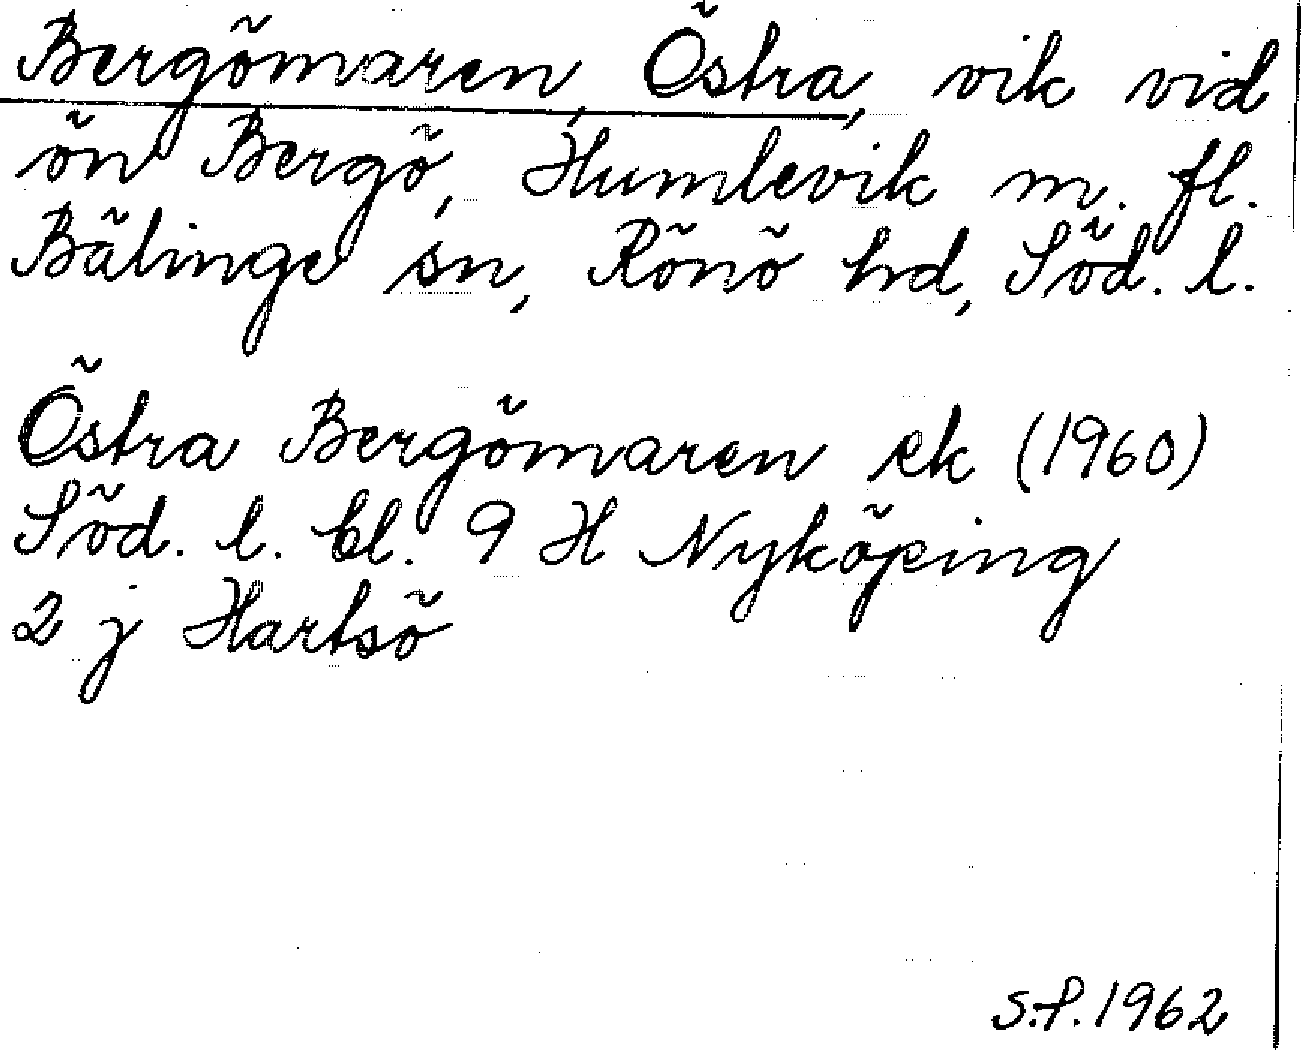 Bergömaren, Östra, vik vid
ön Bergö, Humlevik m. fl.
Bälinge sn, Rönö hd, Söd. l.
Östra Bergömaren ek (1960)
Söd. l. bl. 9 H Nyköping
2 j Hartsö
S.P. 1962